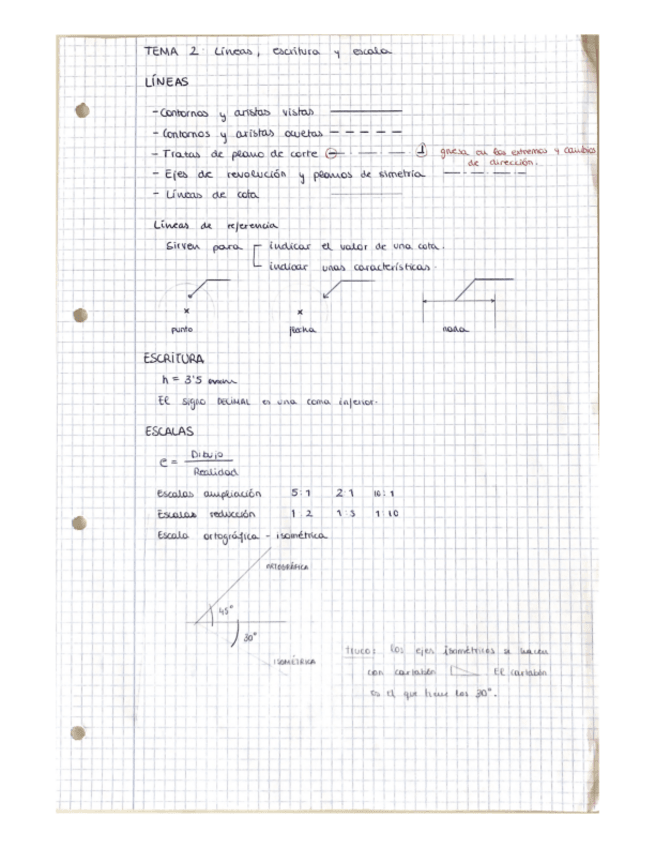 TEMA 2: Líneas, escritura y escala
LÍNEAS
- Contornos y aristas vistas
- Contornos y aristas ocultas
- Tratas de plano de corte
gruesa en los extremos y cambios
de dirección.
- Ejes de revolución y planos de simetría
- Líneas de cota
Líneas de referencia
Sirven para indicar el valor de una cota.
indicar unas características.
punto flecha nada
ESCRITURA
h = 3'5 mm
El signo DECIMAL es una coma inferior.
ESCALAS
e = Dibujo
Realidad
Escalas ampliación 5:1 2:1 10:1
Escalas reducción 1:2 1:5 1:10
Escala ortográfica - isométrica
ORTOGRÁFICA
45°
30°
ISOMÉTRICA
truco: los ejes isométricos se hacen
con cartabón El cartabón
es el que tiene los 30°.